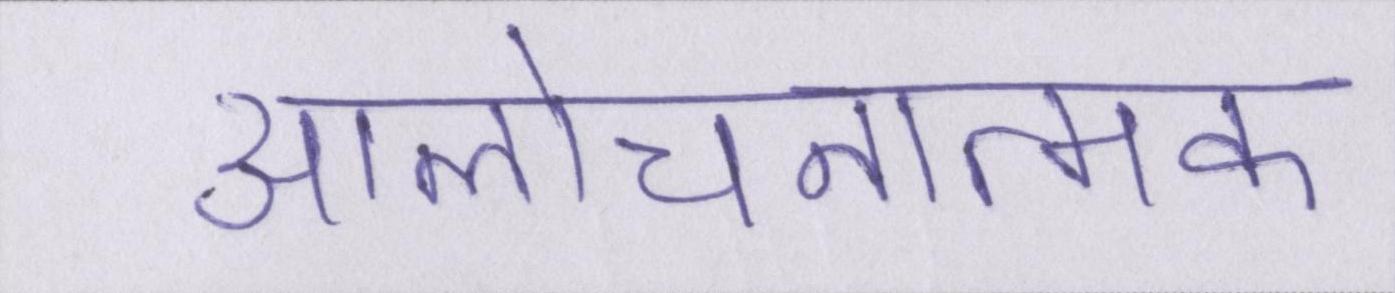 आलोचनात्मक